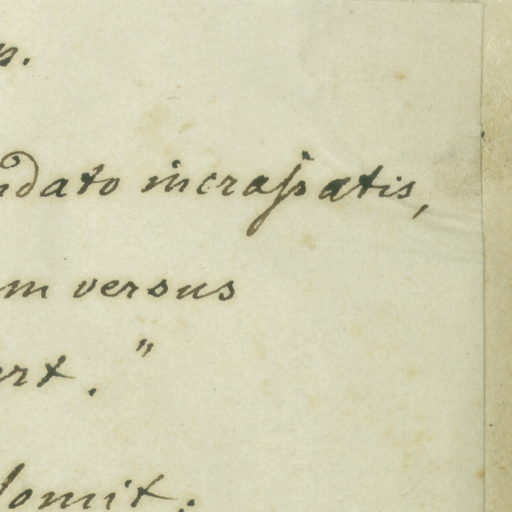 p.
ndato incrassatis,
m versus
ert."
lomit.